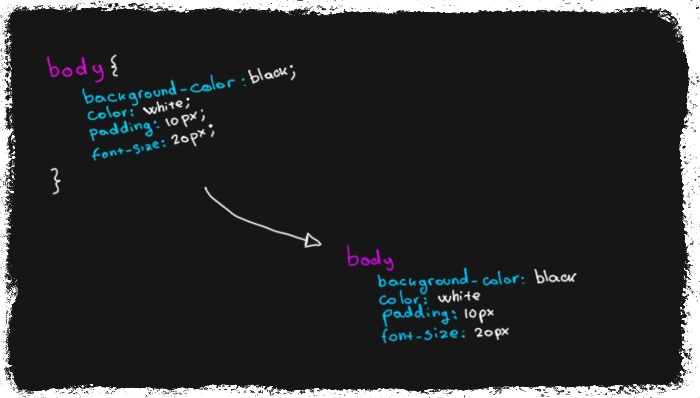 body {
background-color: black;
color: white;
padding: 10px;
font-size: 20px;
}
body
background-color: black
color: white
padding: 10px
font-size: 20px